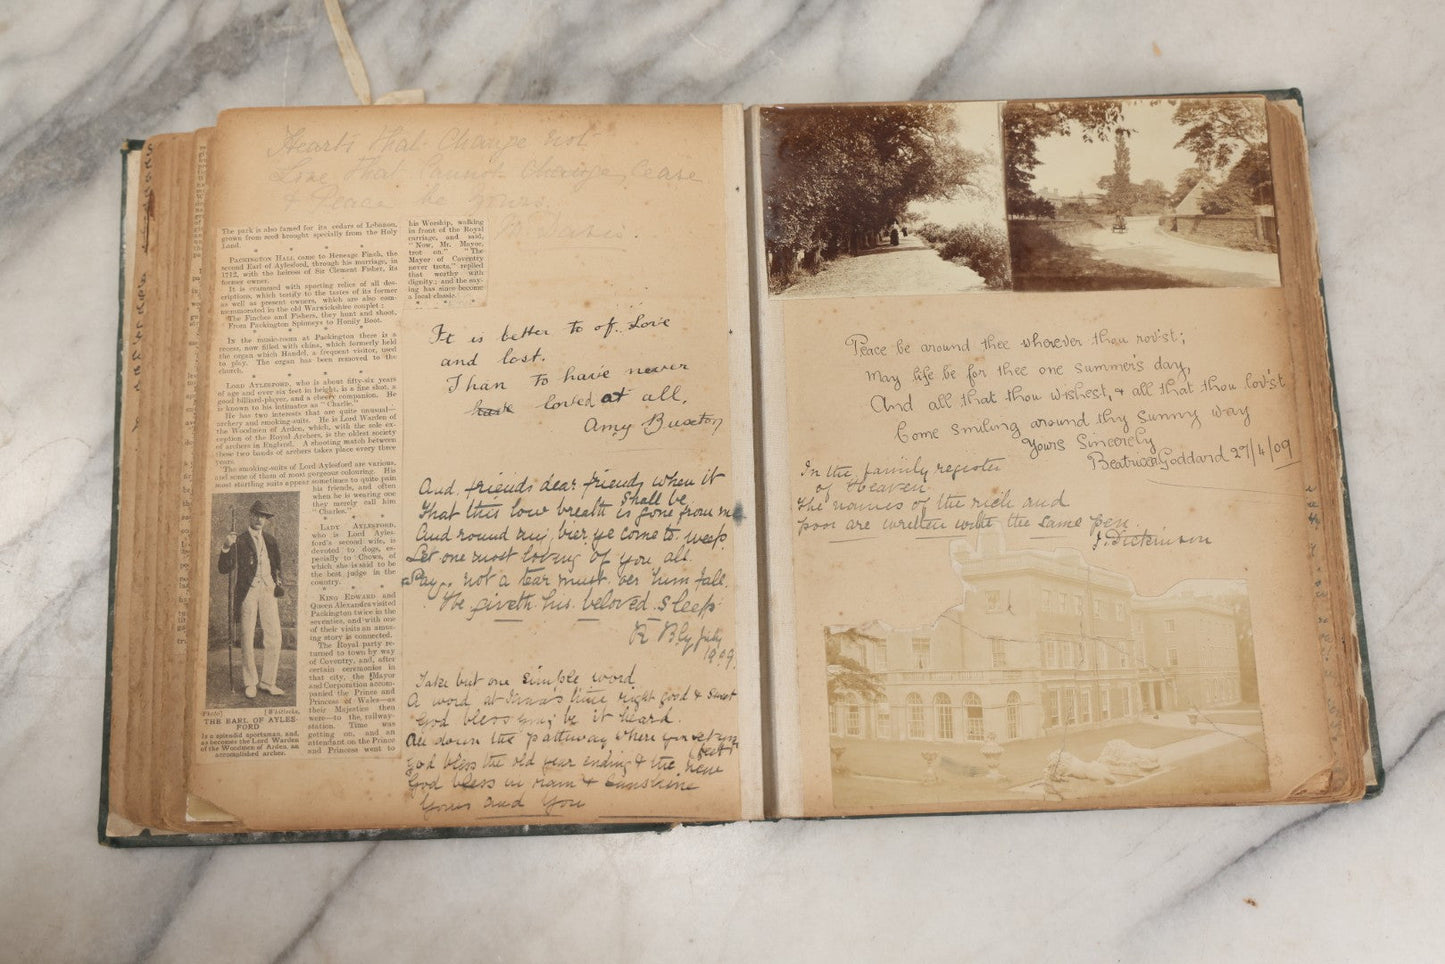 Hearts that Change not
Love that Cannot Change, Cease
& Peace be yours.
The park is also famed for its cedars of Lebanon,
grown from seed brought specially from the Holy
Land.
PACKINGTON HALL came to Heneage Finch, the
second Earl of Aylesford, through his marriage, in
1712, with the heiress of Sir Clement Fisher, its
former owner.
It is crammed with sporting relics of all des-
criptions, which testify to the tastes of its former
as well as present owners, which are also com-
memorated in the old Warwickshire couplet:
The Finches and Fishers, they hunt and shoot,
From Packington Spinneys to Honily Boot.
In the music-room at Packington there is a
recess, now filled with china, which formerly held
the organ which Handel, a frequent visitor, used
to play. The organ has been removed to the
church.
LORD AYLESFORD, who is about fifty-six years
of age and over six feet in height, is a fine shot, a
good billiard-player, and a cheery companion. He
is known to his intimates as "Charlie."
He has two interests that are quite unusual—
archery and smoking-suits. He is Lord Warden of
the Woodmen of Arden, which, with the sole ex-
ception of the Royal Archers, is the oldest society
of archers in England. A shooting match between
these two bands of archers takes place every three
years.
The smoking-suits of Lord Aylesford are various,
and some of them of most gorgeous colouring. His
most startling suits appear sometimes to quite pain
his friends, and often
when he is wearing one
they merely call him
"Charles."
LADY AYLESFORD,
who is Lord Ayles-
ford's second wife, is
devoted to dogs, es-
pecially to Chows, of
which she is said to be
the best judge in the
country.
KING EDWARD and
Queen Alexandra visited
Packington twice in the
seventies, and with one
of their visits an amus-
ing story is connected.
The Royal party re-
turned to town by way
of Coventry, and, after
certain ceremonies in
that city, the Mayor
and Corporation accom-
panied the Prince and
Princess of Wales—as
their Majesties then
were—to the railway-
station. Time was
getting on, and an
attendant on the Prince
and Princess went to
Photo] [Whitlocks.
THE EARL OF AYLES-
FORD
Is a splendid sportsman, and,
as becomes the Lord Warden
of the Woodmen of Arden, an
accomplished archer.
his Worship, walking
in front of the Royal
carriage, and said,
"Now, Mr. Mayor,
trot on." "The
Mayor of Coventry
never trots," replied
that worthy with
dignity; and the say-
ing has since become
a local classic.
It is better to of. Love
and lost.
Than to have never
have loved at all.
Amy Buxton
And friends dear friends when it
shall be
That this low breath is gone from me
And round my bier ye come to weep
Let one most loving of you all
Say, not a tear must oer him fall,
He giveth his beloved sleep
K Bly July
1909
Take but one simple word
A word at Xmas time right good & sweet
God bless you, be it heard.
All down the pathway where your
feet
God bless the old year ending & the new
God bless in rain & sunshine
Yours and You
Peace be around thee wherever thou rov'st;
May life be for thee one summer's day,
And all that thou wishest, & all that thou lov'st
Come smiling around thy sunny way
Yours Sincerely
Beatrice Goddard 27/4/09
In the family register
of Heaven
The names of the rich and
poor are written with the same pen
J. Dickinson